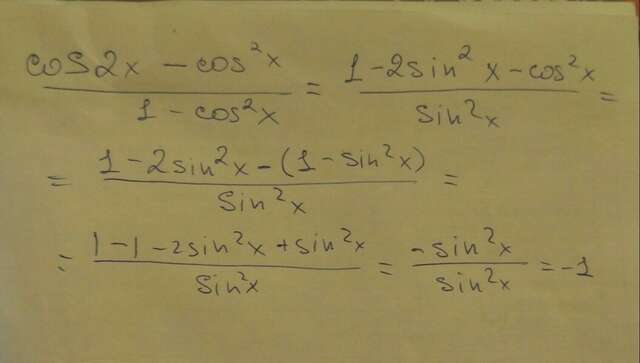 (cos2x - cos²x)/(1 - cos²x) = (1 - 2sin²x - cos²x)/(sin²x) =
= (1 - 2sin²x - (1 - sin²x))/(sin²x) =
= (1 - 1 - 2sin²x + sin²x)/(sin²x) = (-sin²x)/(sin²x) = -1